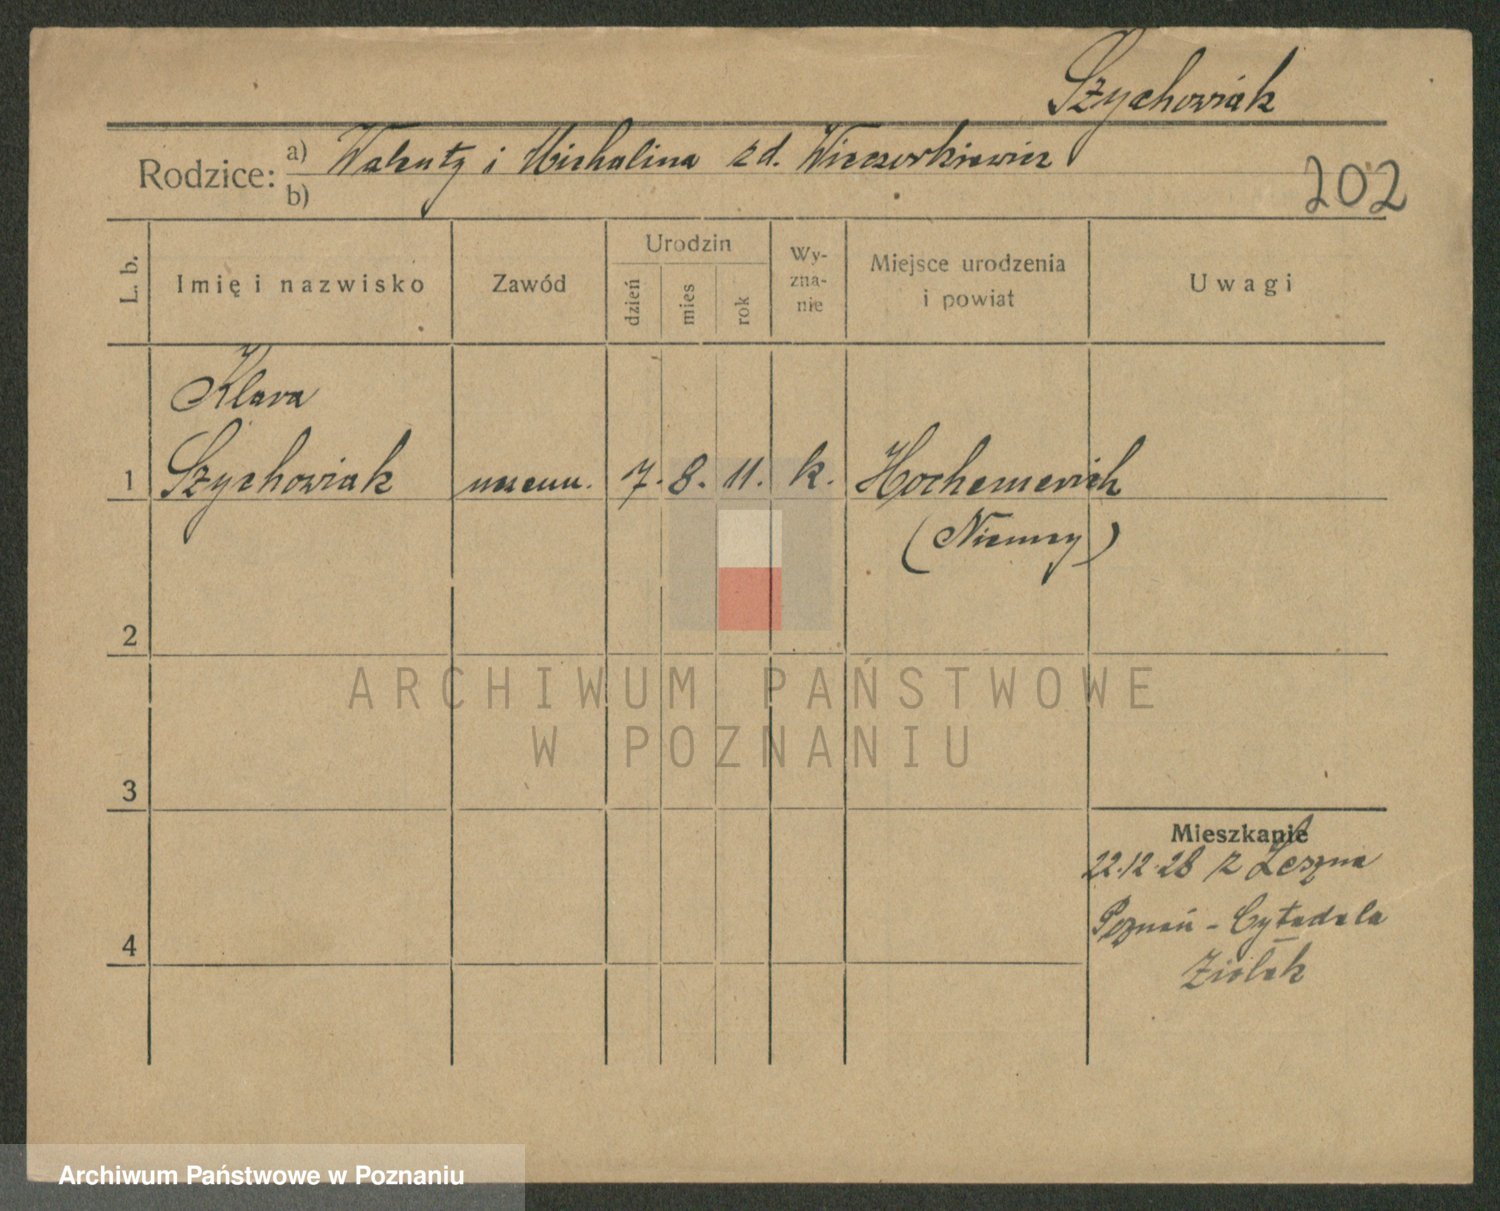 Szychowiak
Rodzice: a) Walenty i Michalina z d. Wieczorkiewicz
b)
202
L. b.
Imię i nazwisko
Zawód
Urodzin
dzień
mies
rok
Wy-
zna-
nie
Miejsce urodzenia
i powiat
Uwagi
Klara
1 Szychowiak uczenn. 7. 8. 11. k. Hochemerich
(Niemcy)
2
3
4
Mieszkanie
22.12.28 z Leszna
Poznań - Cytadela
Ziołek
ARCHIWUM PAŃSTWOWE
W POZNANIU
Archiwum Państwowe w Poznaniu